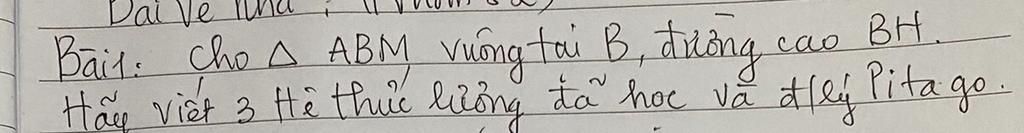 Bài về nhà :
Bài 1: Cho Δ ABM vuông tại B, đường cao BH.
Hãy viết 3 Hệ thức lượng đã học và đ/lý Pitago.